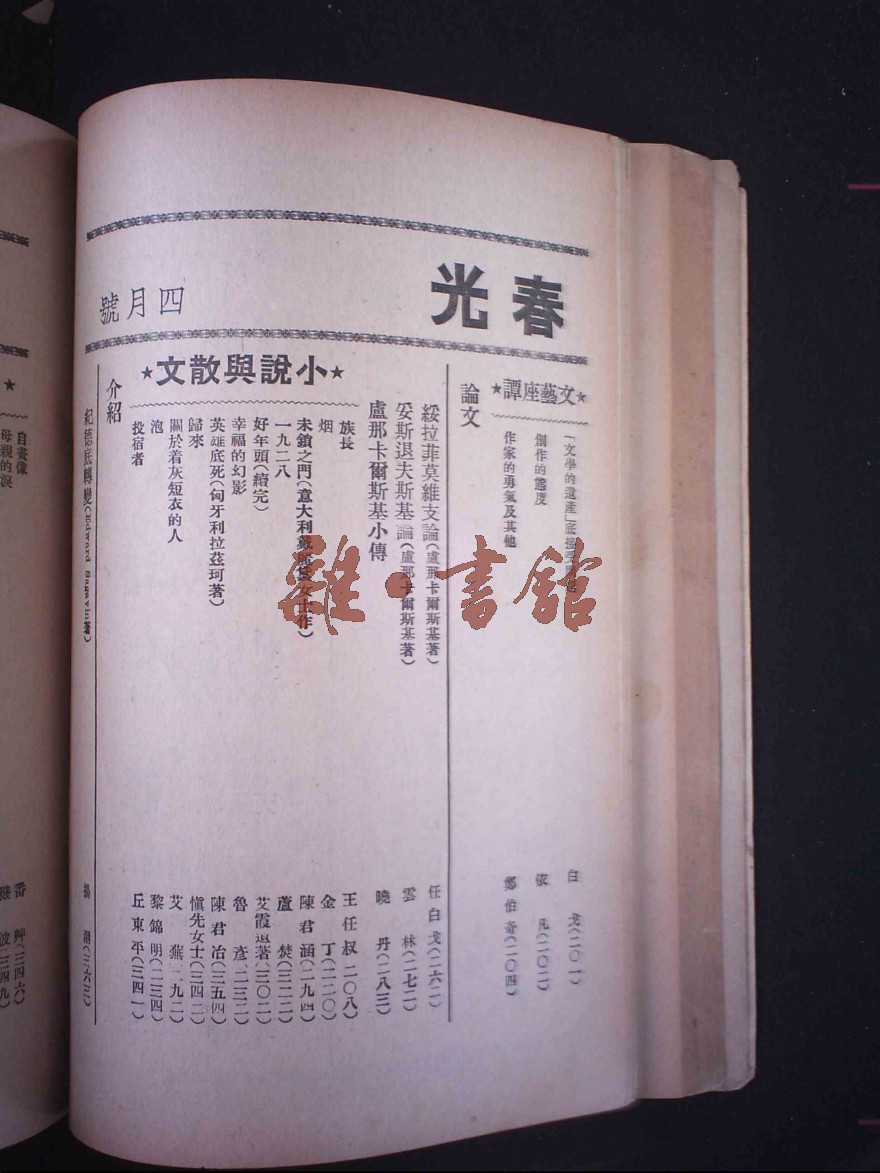 春光
四月號
★文藝座譚★
「文學的遺產」底接
白戈(二〇一)
創作的態度
依凡(二〇二)
作家的勇氣及其他
鄭伯奇(二〇四)
論文
綏拉菲莫維支論(盧那卡爾斯基著)
任白戈(二六二)
妥斯退夫斯基論(盧那卡爾斯基著)
雲林(二七二)
盧那卡爾斯基小傳
曉丹(二八三)
★小說與散文★
族長
王任叔 二〇八)
烟
金丁(二二〇)
未鎖之門(意大利
女士作)
陳君涵(二九四)
一九二八
蘆焚(三二二)
好年頭(續完)
艾霞道著(三〇二)
幸福的幻影
魯彥(二三二)
英雄底死(匈牙利拉茲珂著)
陳君冶(三五四)
歸來
愼先女士(三四二)
關於着灰短衣的人
艾蕪 二九二)
泡
黎錦明(二三四)
投宿者
丘東平(三四一)
介紹
紀德底轉變
著)
楊
(三六三)
★
自畫像
番艸(三四六)
母親的淚
波(三四九)
雜·書館